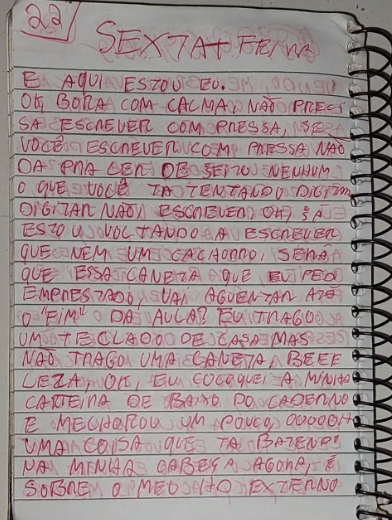 22
SEXTA FEIRA
E AQUI ESTOU EU.
OK, BORA COM CALMA, NÃO PRECI
SA ESCREVER COM PRESSA, SE
VOCÊ ESCREVER COM PRESSA NÃO
DA PRA LER DE JEITO NENHUM
O QUE VOCÊ TA TENTANDO DIGITAR
DIGITAR NÃO, ESCREVER, OK, JÁ
ESTOU VOLTANDO A ESCREVER
QUE NEM UM CACHORRO, SERÁ
QUE ESSA CANETA QUE EU PEDI
EMPRESTADO, VAI AGUENTAR ATÉ
O "FIM" DA AULA? EU TRAGO
UM TECLADO DE CASA MAS
NÃO TRAGO UMA CANETA, BELE
LEZA, OK, EU COLOQUEI A MINHA
CARTEIRA DE BAIXO DO CADERNO
E MELHOROU UM POUCO, OOOOH
UMA COISA QUE TA BATENDO
NA MINHA CABEÇA AGORA, É
SOBRE O MEU HD EXTERNO